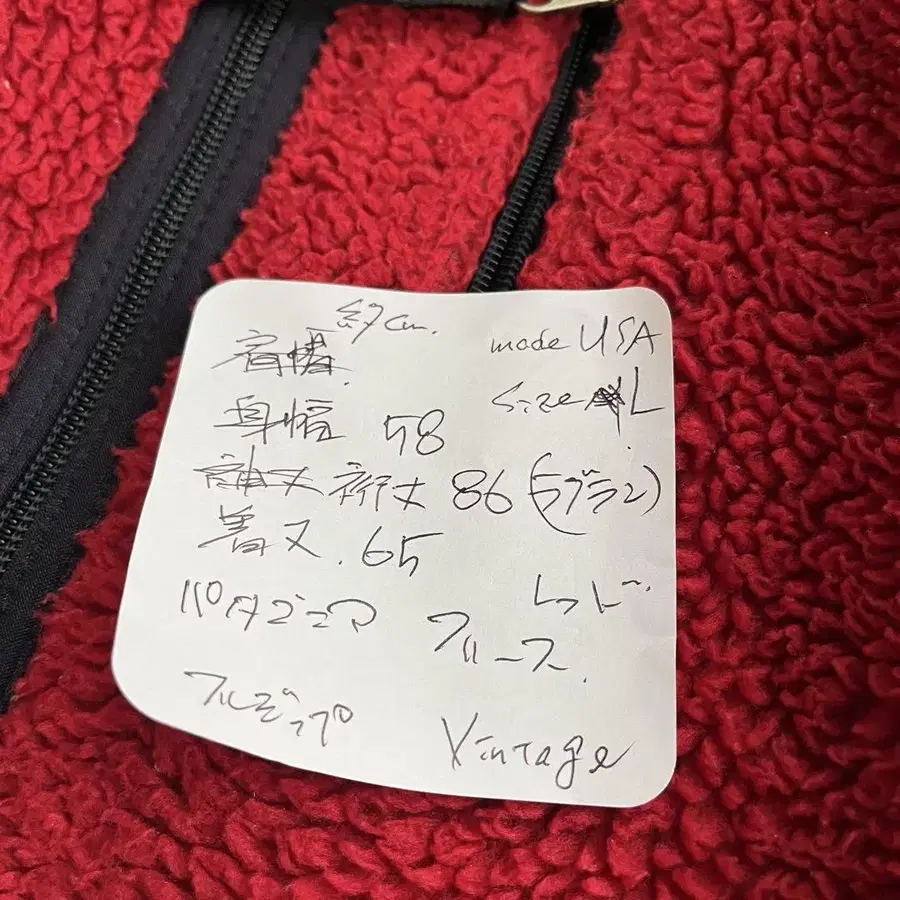 約cm.
肩幅
made USA
size L
身幅 58
袖丈 裄丈 86 (ラグラン)
着丈 65
パタゴニア
レッド
フリース
フルジップ
Vintage